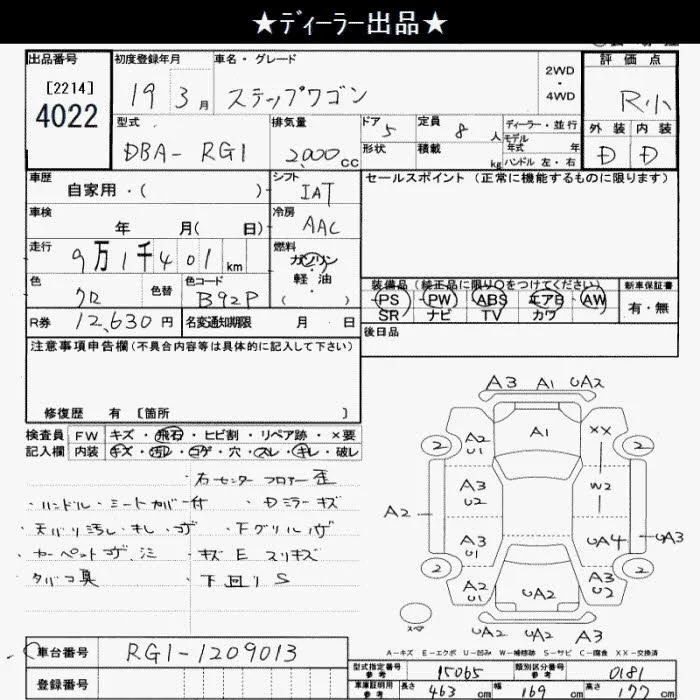 ★ディーラー出品★
出品番号
[2214]
4022
初度登録年月
19 3月
車名・グレード
ステップワゴン
2WD
・
4WD
評価点
R小
外装 内装
D D
型式
DBA-RG1
排気量
2,000cc
ドア 5
形状
定員 8人
積載 kg
ディーラー・並行
モデル
年式 年
ハンドル 左・右
車歴
自家用・( )
シフト
IAT
セールスポイント(正常に機能するものに限ります)
車検
年 月( 日)
冷房
AAC
走行
9万1千401km
燃料
ガソリン
軽油
( )
色
クロ
色替
色コード
B92P
装備品(純正品に限り○をつけてください)
PS PW ABS エアB AW
SR ナビ TV カワ
新車保証書
有・無
R券 12,630円
名変通知期限 月 日
後日品
注意事項申告欄(不具合内容等は具体的に記入して下さい)
修復歴 有 [箇所 ]
検査員 FW キズ・飛石・ヒビ割・リペア跡・×要
記入欄 内装 キズ・汚レ・コゲ・穴・スレ・キレ・破レ
右センターフロアー歪
・ハンドル・シートカバー付 ・Dミラーキズ
・天バリ汚レ・キレ・コゲ ・下グリルハゲ
・カーペットコゲ、シミ ・キズEスリキズ
タバコ臭 下回りS
A3 A1 UA2
A2
U1
A1
XX
2 2
A2
A3
U2
W2
A3
U1
UA4
UA3
2 2
A2
U1
UA2
A3
U2
スペア
UA2 UA2 A3
A-キズ E-エクボ U-凹み W-補修跡 S-サビ C-腐食 XX-交換済
車台番号 RG1-1209013
登録番号
型式指定番号
参考
15065
類別区分番号
参考
0181
車庫証明用
参考
長さ 463cm 幅 169cm 高さ 177cm